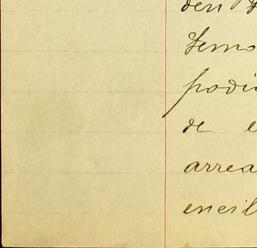 den
Temo
podi
de e
arrea
encil